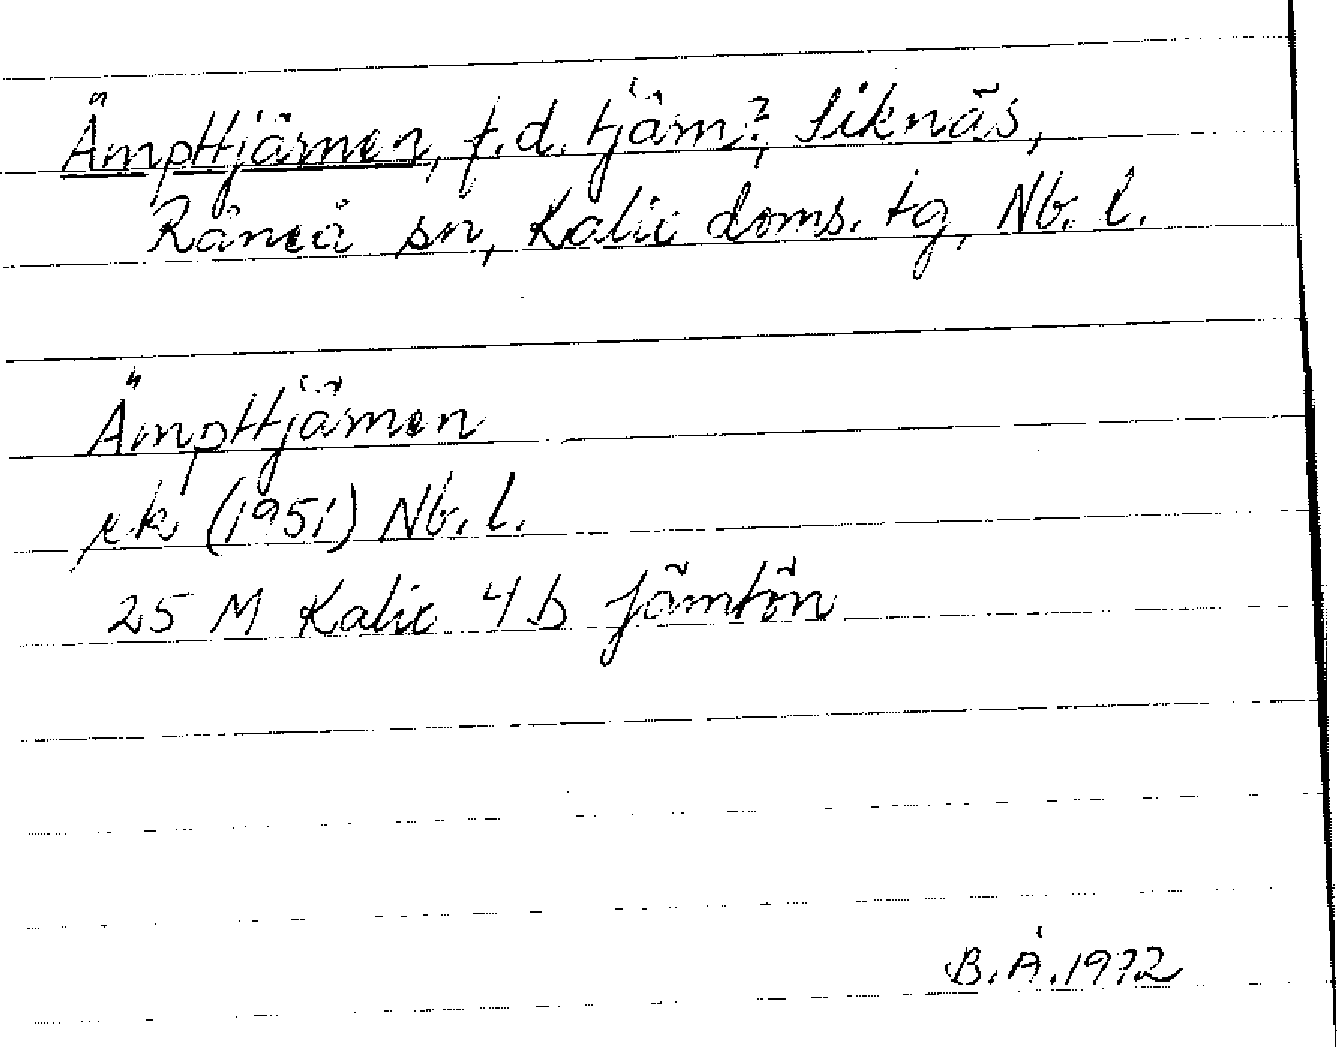 Ämpttjärnen, f.d. tjärn?, Siknäs,
Råneå sn, Kalix doms. tg, Nb. l.
Ämpttjärnen
ek (1951) Nb. l.
25 M Kalix 4 b Jämtön
B. Å. 1972